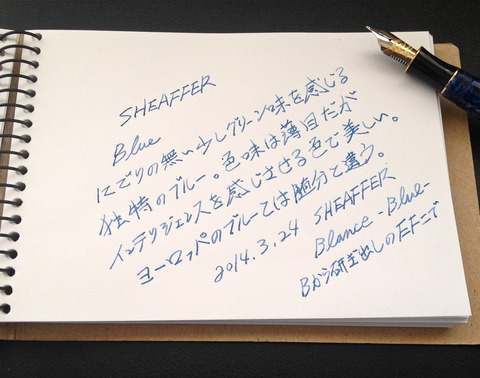 SHEAFFER
Blue
にごりの無い少しグリーン味を感じる
独特のブルー。色味は薄目だが
インテリジェンスを感じさせる色で美しい。
ヨーロッパのブルーでは随分と違う。
2014.3.24 SHEAFFER
Blance - Blue-
Bから研ぎ出しのEFニブ